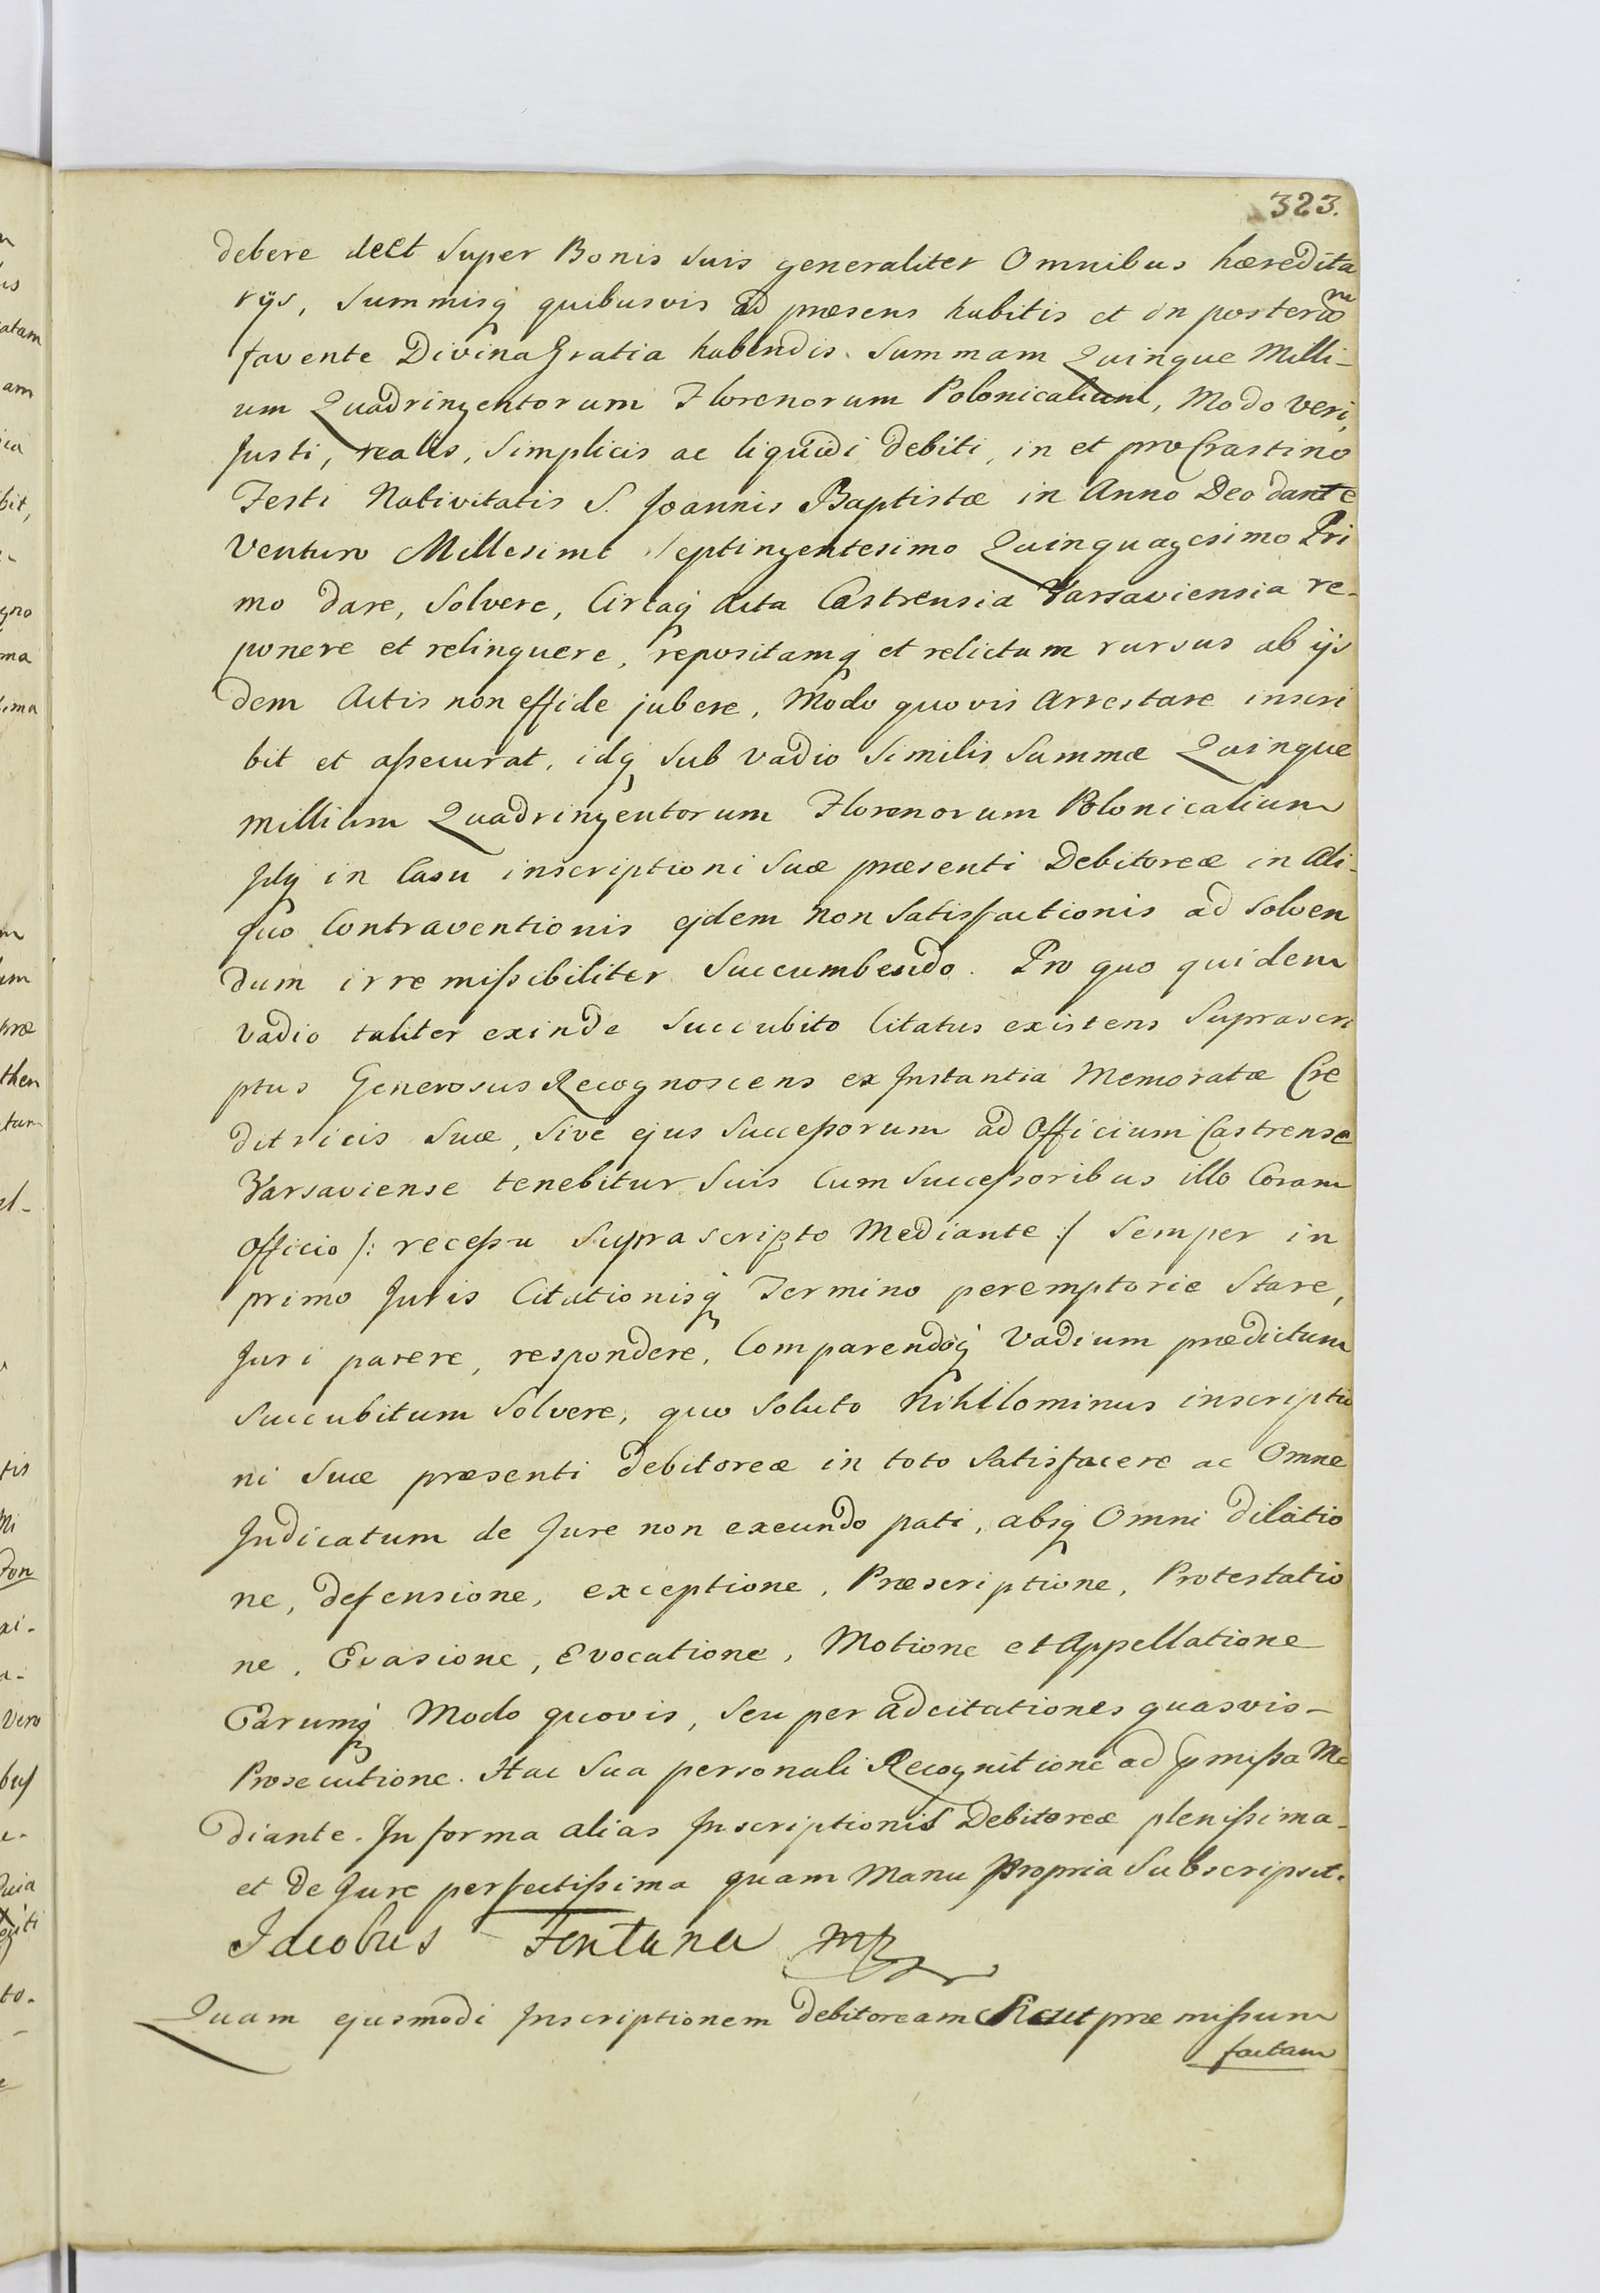 323.
debere dect Super Bonis Suis generaliter Omnibus hæredita
rijs, Summisq quibusvis ad præsens habitis et in posteru
favente Divina Gratia habendis. Summam Quinque Milli-
um Quadringentorum Florenorum Polonicalium, Modo veri,
Justi, realis, Simplicis ac liquidi debiti, in et pro Crastino
Festi Nativitatis S. Joannis Baptistæ in Anno Deo dante
Venturo Millesimo Septingentesimo Quinquagesimo Pri
mo dare, Solvere, Circaq Acta Castrensia Varsaviensia re-
ponere et relinquere, repositamq et relictam rursus ab ijs
dem Actis non effide jubere, Modo quovis Arrestare inscri
bit et assecurat, idq Sub vadio Similis Summæ Quinque
millium Quadringentorum Florenorum Polonicalium
Idq in Casu inscriptioni Suæ præsenti Debitoreæ in Ali-
quo Contraventionis ejdem non Satisfactionis ad Solven
dum irremissibiliter Succumbendo. Pro quo quidem
Vadio taliter exinde Succubito Citatus existens Suprascri
ptus Generosus Recognoscens ex Instantia Memoratæ Cre
ditricis Suæ, Sive ejus Successorum ad Officium Castrense
Varsaviense tenebitur Suis Cum Successoribus illo Coram
Officio /: recessu Suprascripto Mediante :/ Semper in
primo Juris Citationisq Termino peremptorie Stare,
Juri parere, respondere, Comparendoq Vadium prædictum
Succubitum Solvere, quo Soluto Nihilominus inscriptio
ni Suæ præsenti debitoreæ in toto Satisfacere ac Omne
Judicatum de Jure non exeundo pati, absq Omni dilatio
ne, defensione, exceptione, Præscriptione, Protestatio
ne, Evasione, Evocatione, Motione et Appellatione
Earumq Modo quovis, Seu per adcitationes quasvis-
Prosecutione. Hac Sua personali Recognitione ad pmissa Me
diante. In forma alias Inscriptionis Debitoreæ plenissima-
et de Jure perfectissima quam Manu Propria Subscripsit.
Jacobus Fontana mp
Quam ejusmodi Inscriptionem debitoream Sicut præmissum
factam